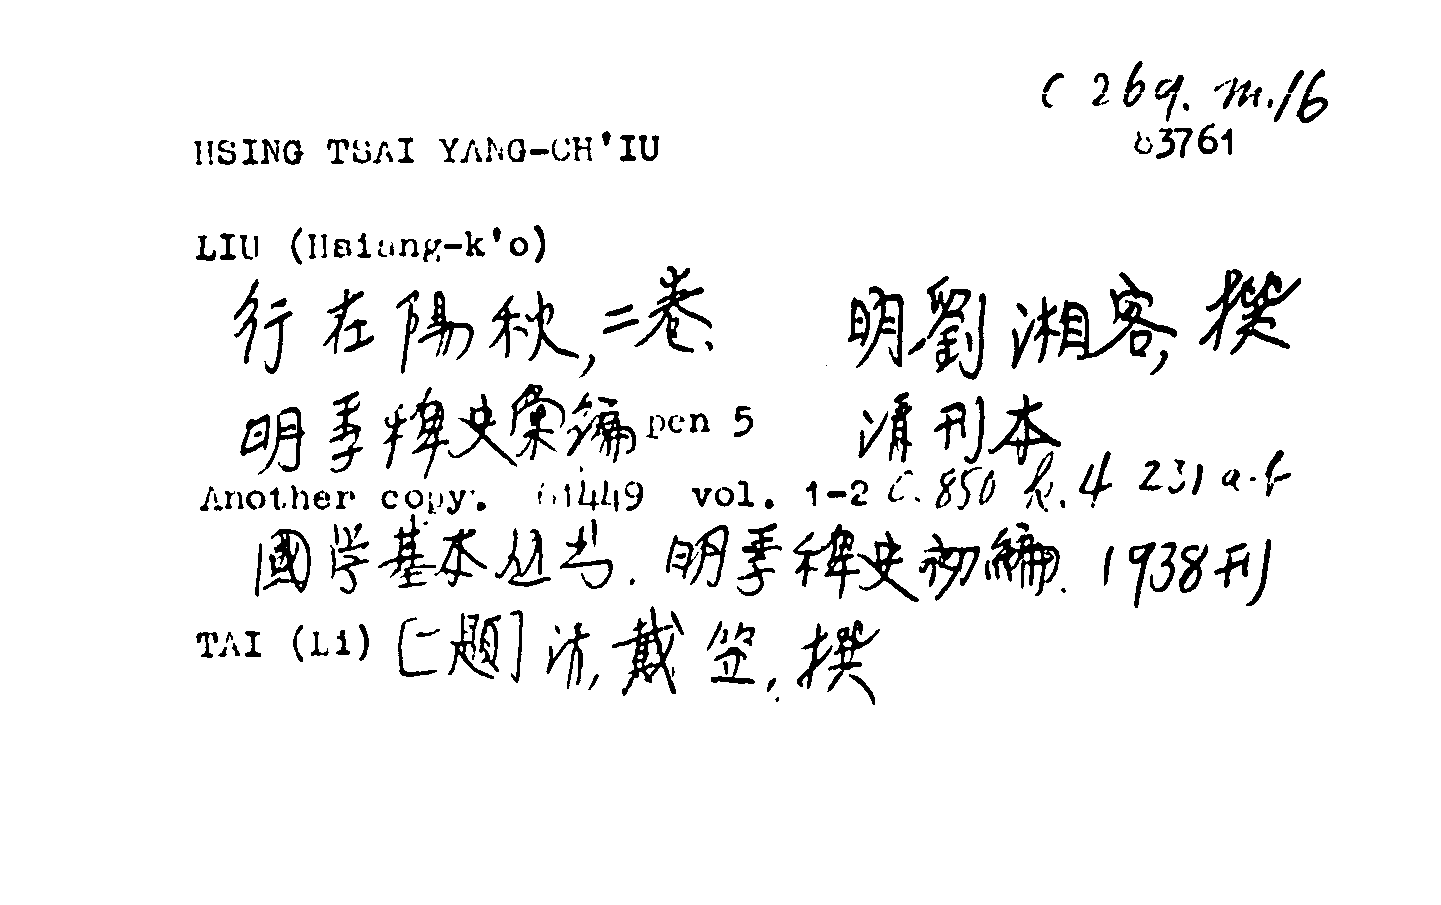 C 269. m.16
83761
HSING TSAI YANG-CH'IU
LIU (Hsiang-k'o)
行在陽秋,二卷. 明劉湘客,撰
明季稗史彙編 pen 5 清刊本
Another copy. 61449 vol. 1-2 C. 850 k. 4 231 a-b
國学基本丛书. 明季稗史初編. 1938刊
TAI (Li) [一題] 清,戴笠,撰